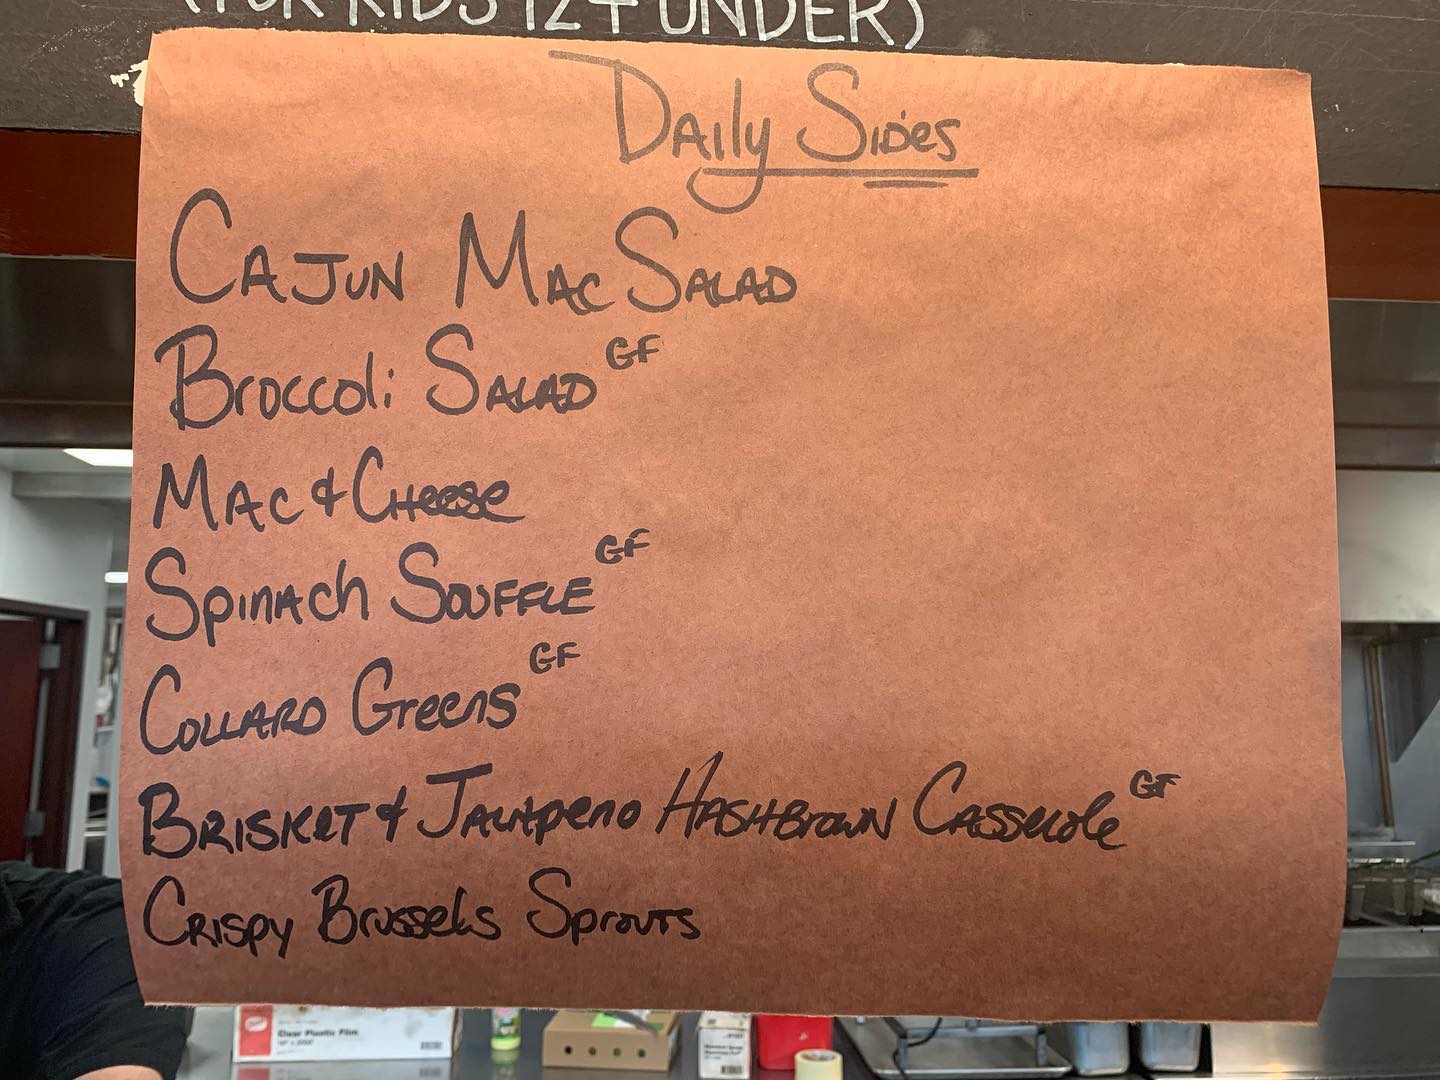 (FOR KIDS 12 + UNDER)
Daily Sides
Cajun Mac Salad
Broccoli Salad GF
Mac & Cheese
Spinach Souffle GF
Collard Greens GF
Brisket & Jalapeno Hashbrown Casserole GF
Crispy Brussels Sprouts
Clear Plastic Film